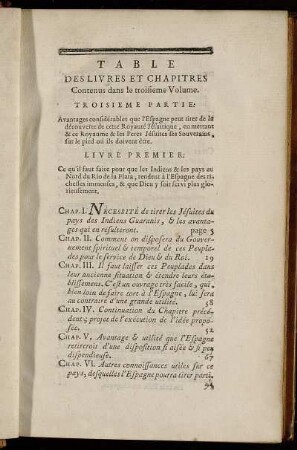 TABLE
DES LIVRES ET CHAPITRES
Contenus dans le troisieme Volume.
TROISIEME PARTIE:
Avantages considérables que l'Espagne peut tirer de la
découverte de cette Royauté Jésuitique, en mettant
& ce Royaume & les Peres Jésuites ses Souverains,
sur le pied où ils doivent être.
LIVRE PREMIER:
Ce qu'il faut faire pour que les Indiens & les pays au
Nord du Rio de la Plata, rendent à l'Espagne des ri-
chesses immenses, & que Dieu y soit servi plus glo-
rieusement.
CHAP. I. NECESSITÉ de tirer les Jésuites du
pays des Indiens Guaranis, & les avanta-
ges qui en résulteront. page 3
CHAP. II. Comment on disposera du Gouver-
nement spirituel & temporel de ces Peupla-
des pour le service de Dieu & du Roi. 19
CHAP. III. Il faut laisser ces Peuplades dans
leur ancienne situation & étendre leurs éta-
blissemens. C'est un ouvrage très facile, qui,
bien loin de faire tort à l'Espagne, lui sera
au contraire d'une grande utilité. 38
CHAP. IV. Continuation du Chapitre précé-
dent; projet de l'exécution de l'idée propo-
sée. 52
CHAP. V. Avantage & utilité que l'Espagne
retirerois d'une disposition si aisée & si peu
dispendieuse. 67
CHAP. VI. Autres connoissances utiles sur ce
pays, desquelles l'Espagne pourra tirer parti.